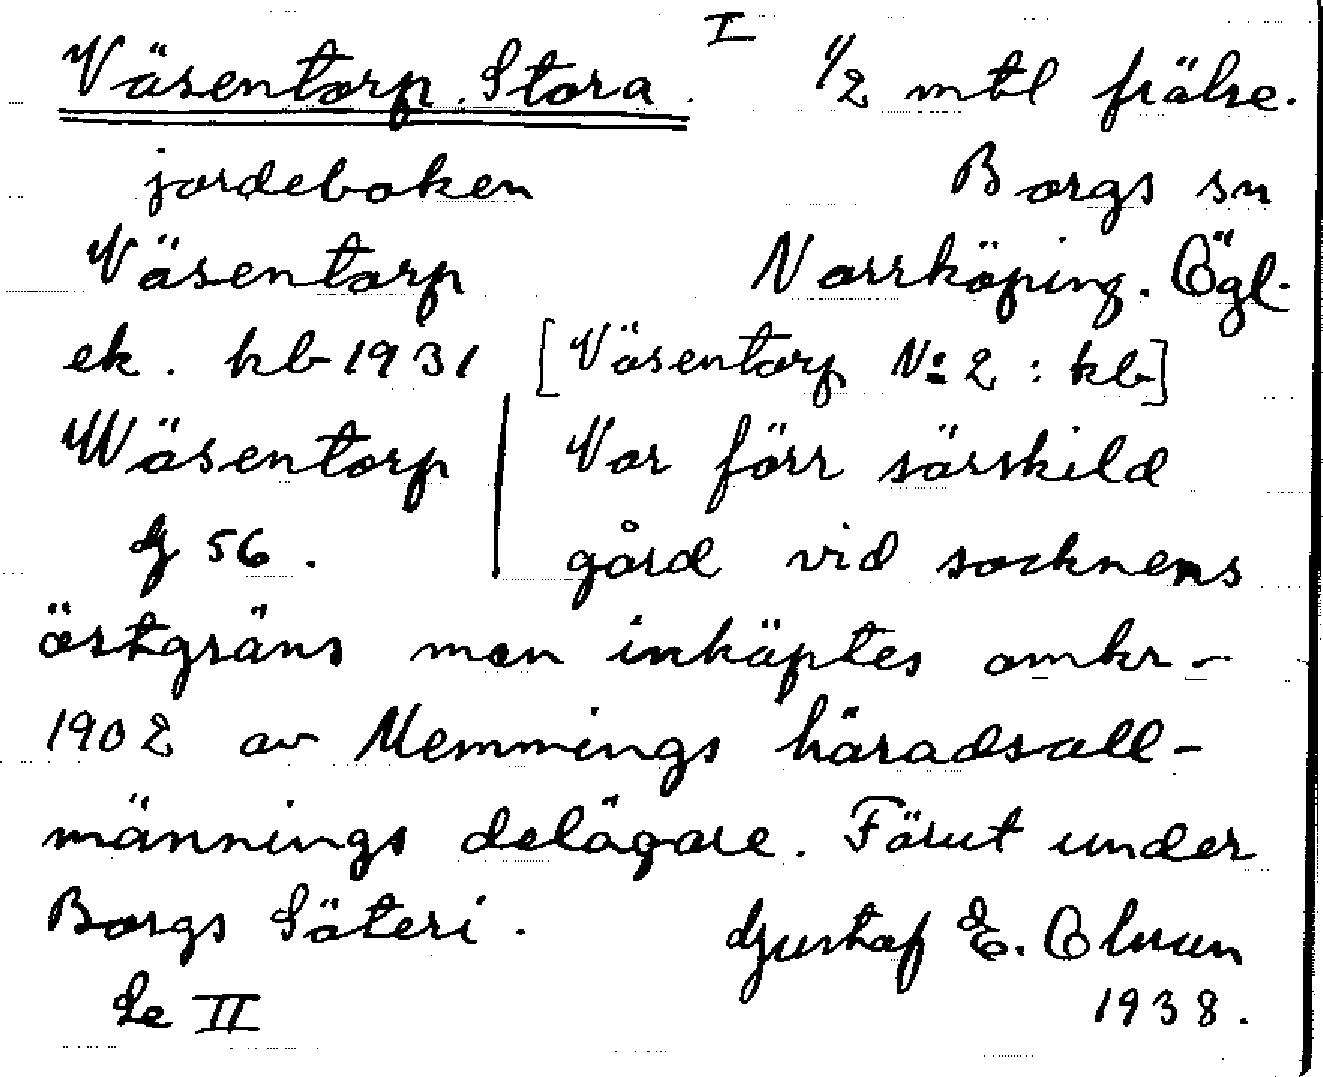 I
Väsentorp. Stora. 1/2 mtl frälse.
jordeboken Borgs sn
Väsentorp Norrköping. Ögl.
ek. kb 1931 [Väsentorp No 2 : kb]
Wäsentorp Var förr särskild
G 56. gård vid socknens
östgräns men inköptes omkr-
1902 av Memmings häradsall-
männings delägare. Förut under
Borgs Säteri. Gustaf E. Olsson
Se II 1938.